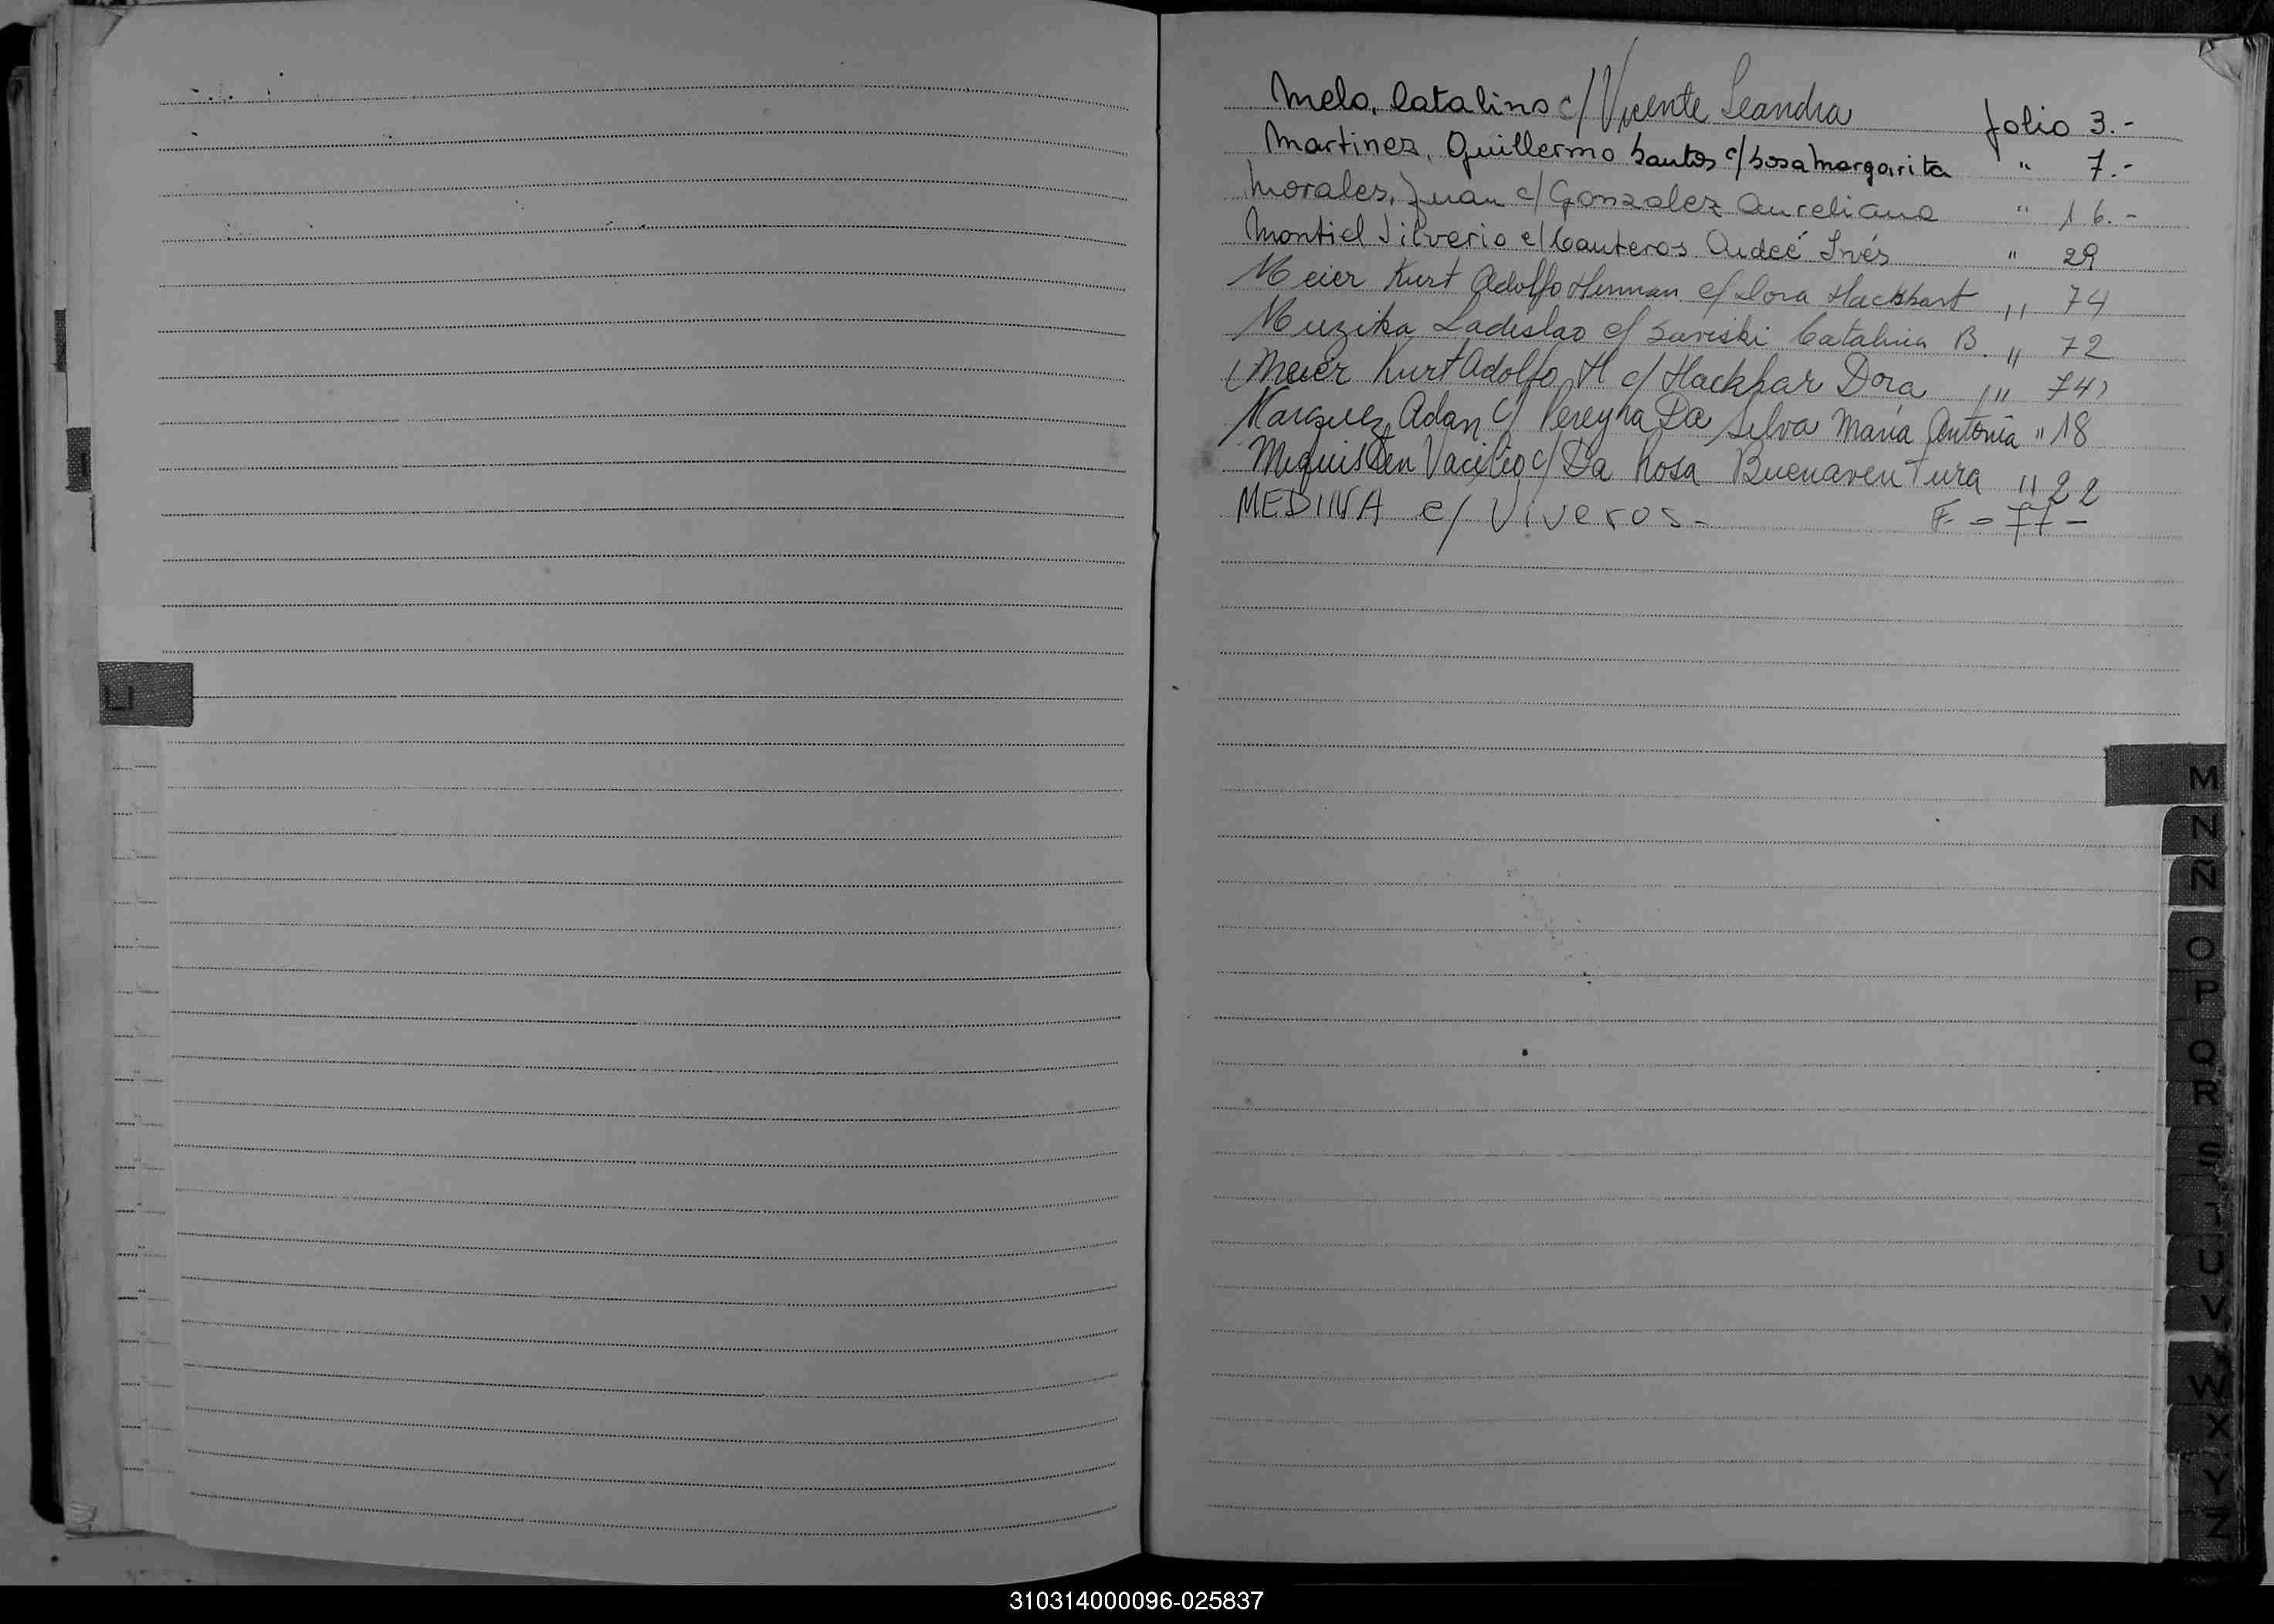 Melo, Catalino c/ Vicente Leandra folio 3.-
Martinez, Guillermo Santos c/ Sosa Margarita " 7.-
Morales, Juan c/ Gonzalez Aureliana " 16.-
Montiel Silverio c/ Canteros Aideé Inés " 29
Meier Kurt Adolfo Herman c/ Dora Hackbart " 74
Muzika Ladislao c/ Catalina B. " 72
(Meier Kurt Adolfo H c/ Hackbar Dora " 74)
Marquez Adan c/ Pereyra Da Silva Maria Antonia " 18
Vacilio c/ Da Rosa Buenaventura " 22
MEDINA c/ Viveros.- F = 77 -
L
M
N
Ñ
O
P
Q
R
S
T
U
V
W
X
Y
Z
310314000096-025837